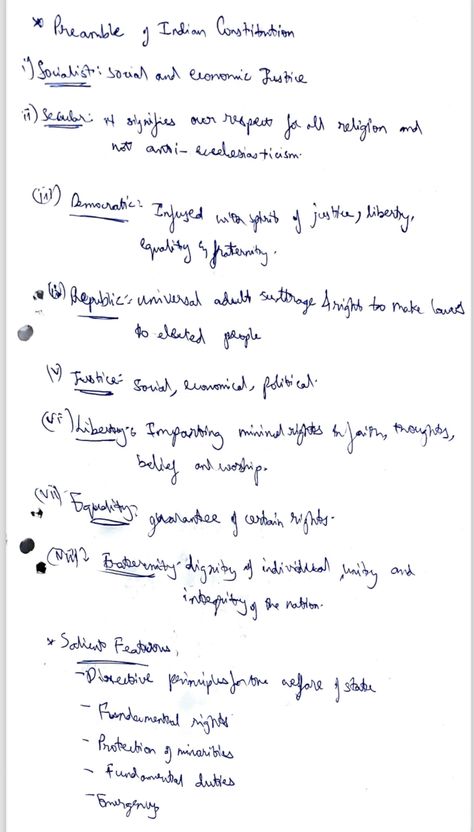 * Preamble of Indian Constitution
i) Socialist: social and economic Justice
ii) Secular: it signifies our respect for all religion and
not anti-ecclesiasticism.
(iii) Democratic: Infused with spirit of justice, liberty,
equality & fraternity.
(iv) Republic: universal adult suffrage & right to make laws
to elected people
(v) Justice- social, economical, political.
(vi) Liberty: Imparting minimal rights in faith, thoughts,
belief and worship.
(vii) Equality: guarantee of certain rights.
(viii) Fraternity- dignity of individual, unity and
integrity of the nation.
* Salient Features,
- Directive principles for the welfare of state
- Fundamental rights
- Protection of minorities
- Fundamental duties
- Emergency